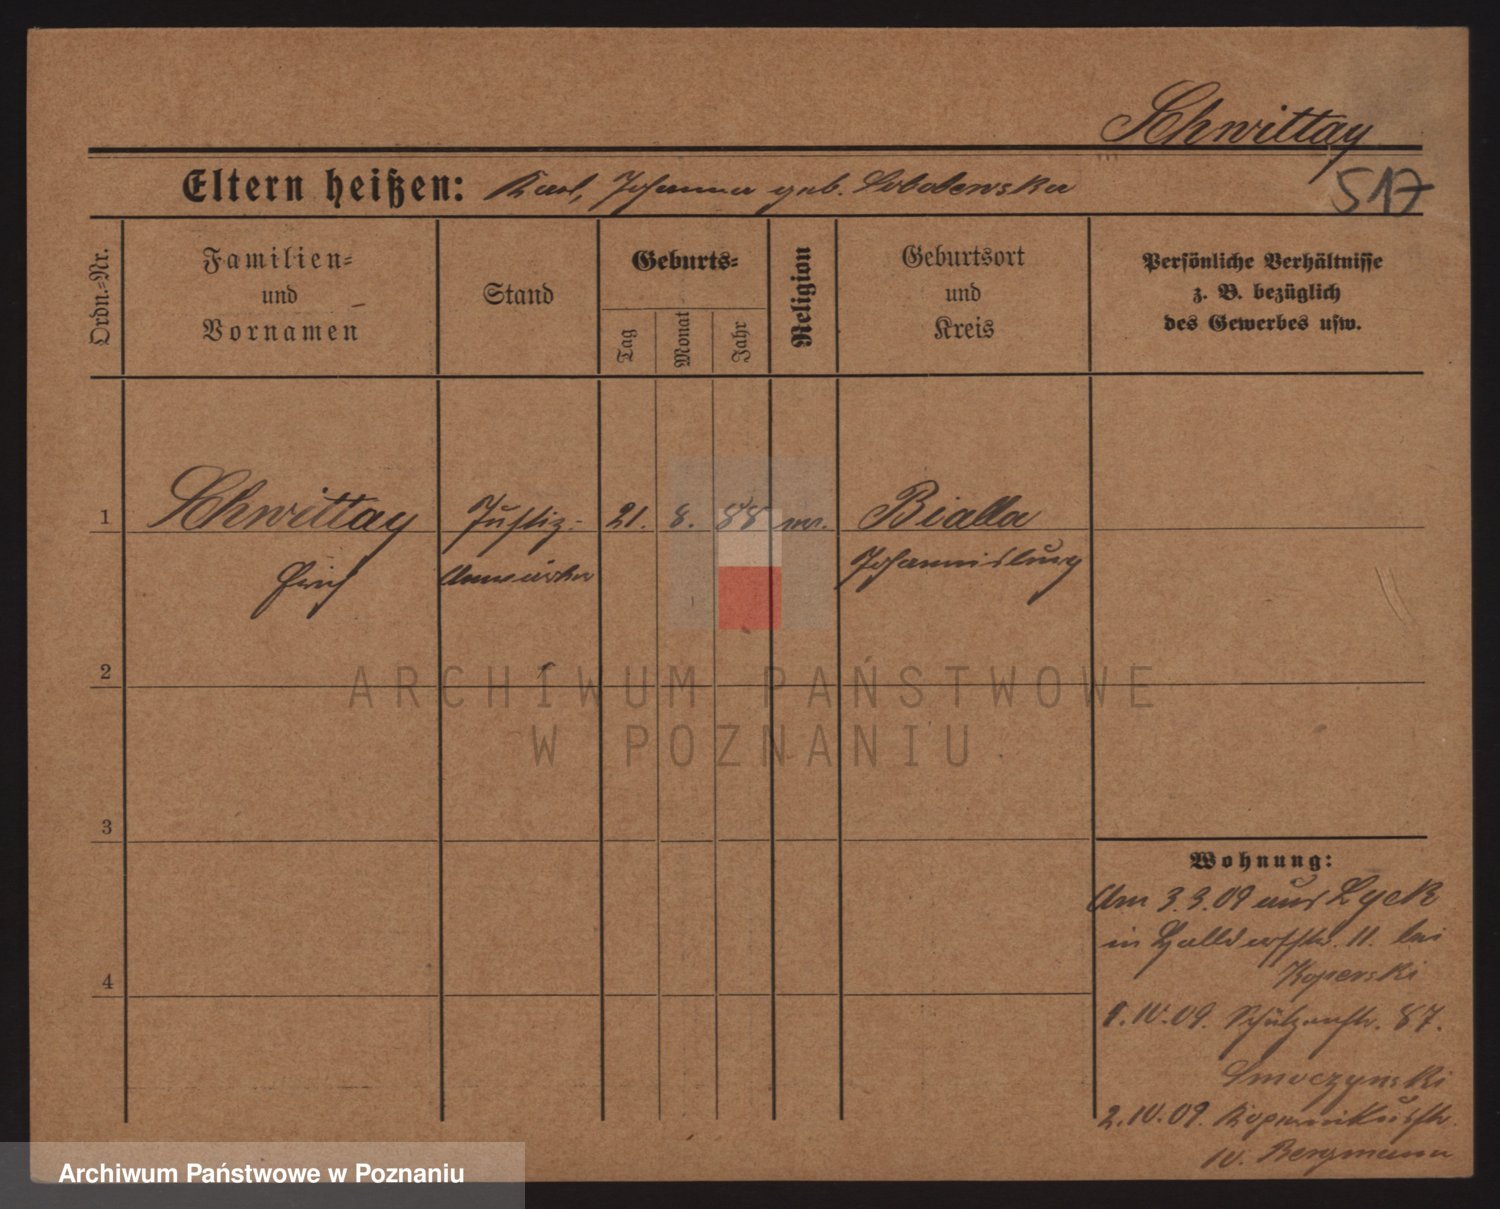 Schwittay
517
Eltern heißen: Karl, Johanna geb. Sobolewska
Ordn.-Nr.
Familien-
und
Vornamen
Stand
Geburts-
Tag
Monat
Jahr
Religion
Geburtsort
und
Kreis
Persönliche Verhältnisse
z. B. bezüglich
des Gewerbes usw.
1
Schwittay
Erich
Justiz-
Anwärter
21. 8. 88
ev.
Bialla
Johannisburg
2
ARCHIWUM PAŃSTWOWE
W POZNANIU
3
Wohnung:
Am 3.3.09 aus Lyck
in 11. bei
Koperski
4
1.IV.09. Schützenstr. 87.
Smoczynski
2.IV.09. Kopernikusstr.
IV. Bergmann
Archiwum Państwowe w Poznaniu